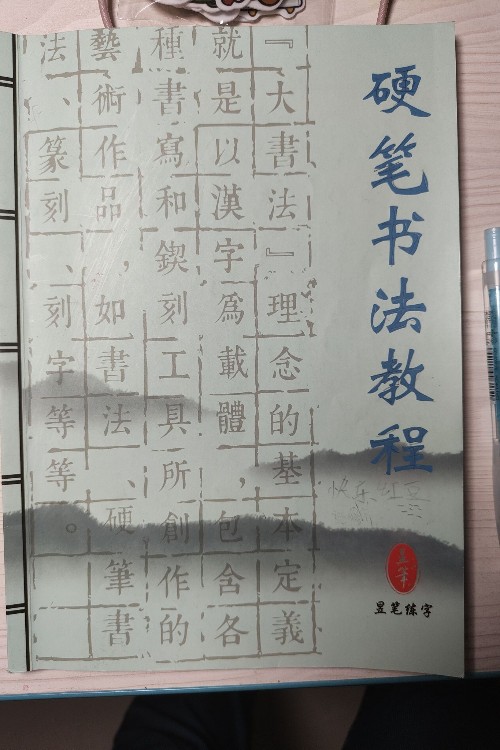 硬笔书法教程
『大書法』理念的基本定義
就是以漢字為載體，包含各
種書寫和鍥刻工具所創作的
藝術作品，如書法、硬筆書
法、篆刻、刻字等等。
快乐红豆
昱笔练字